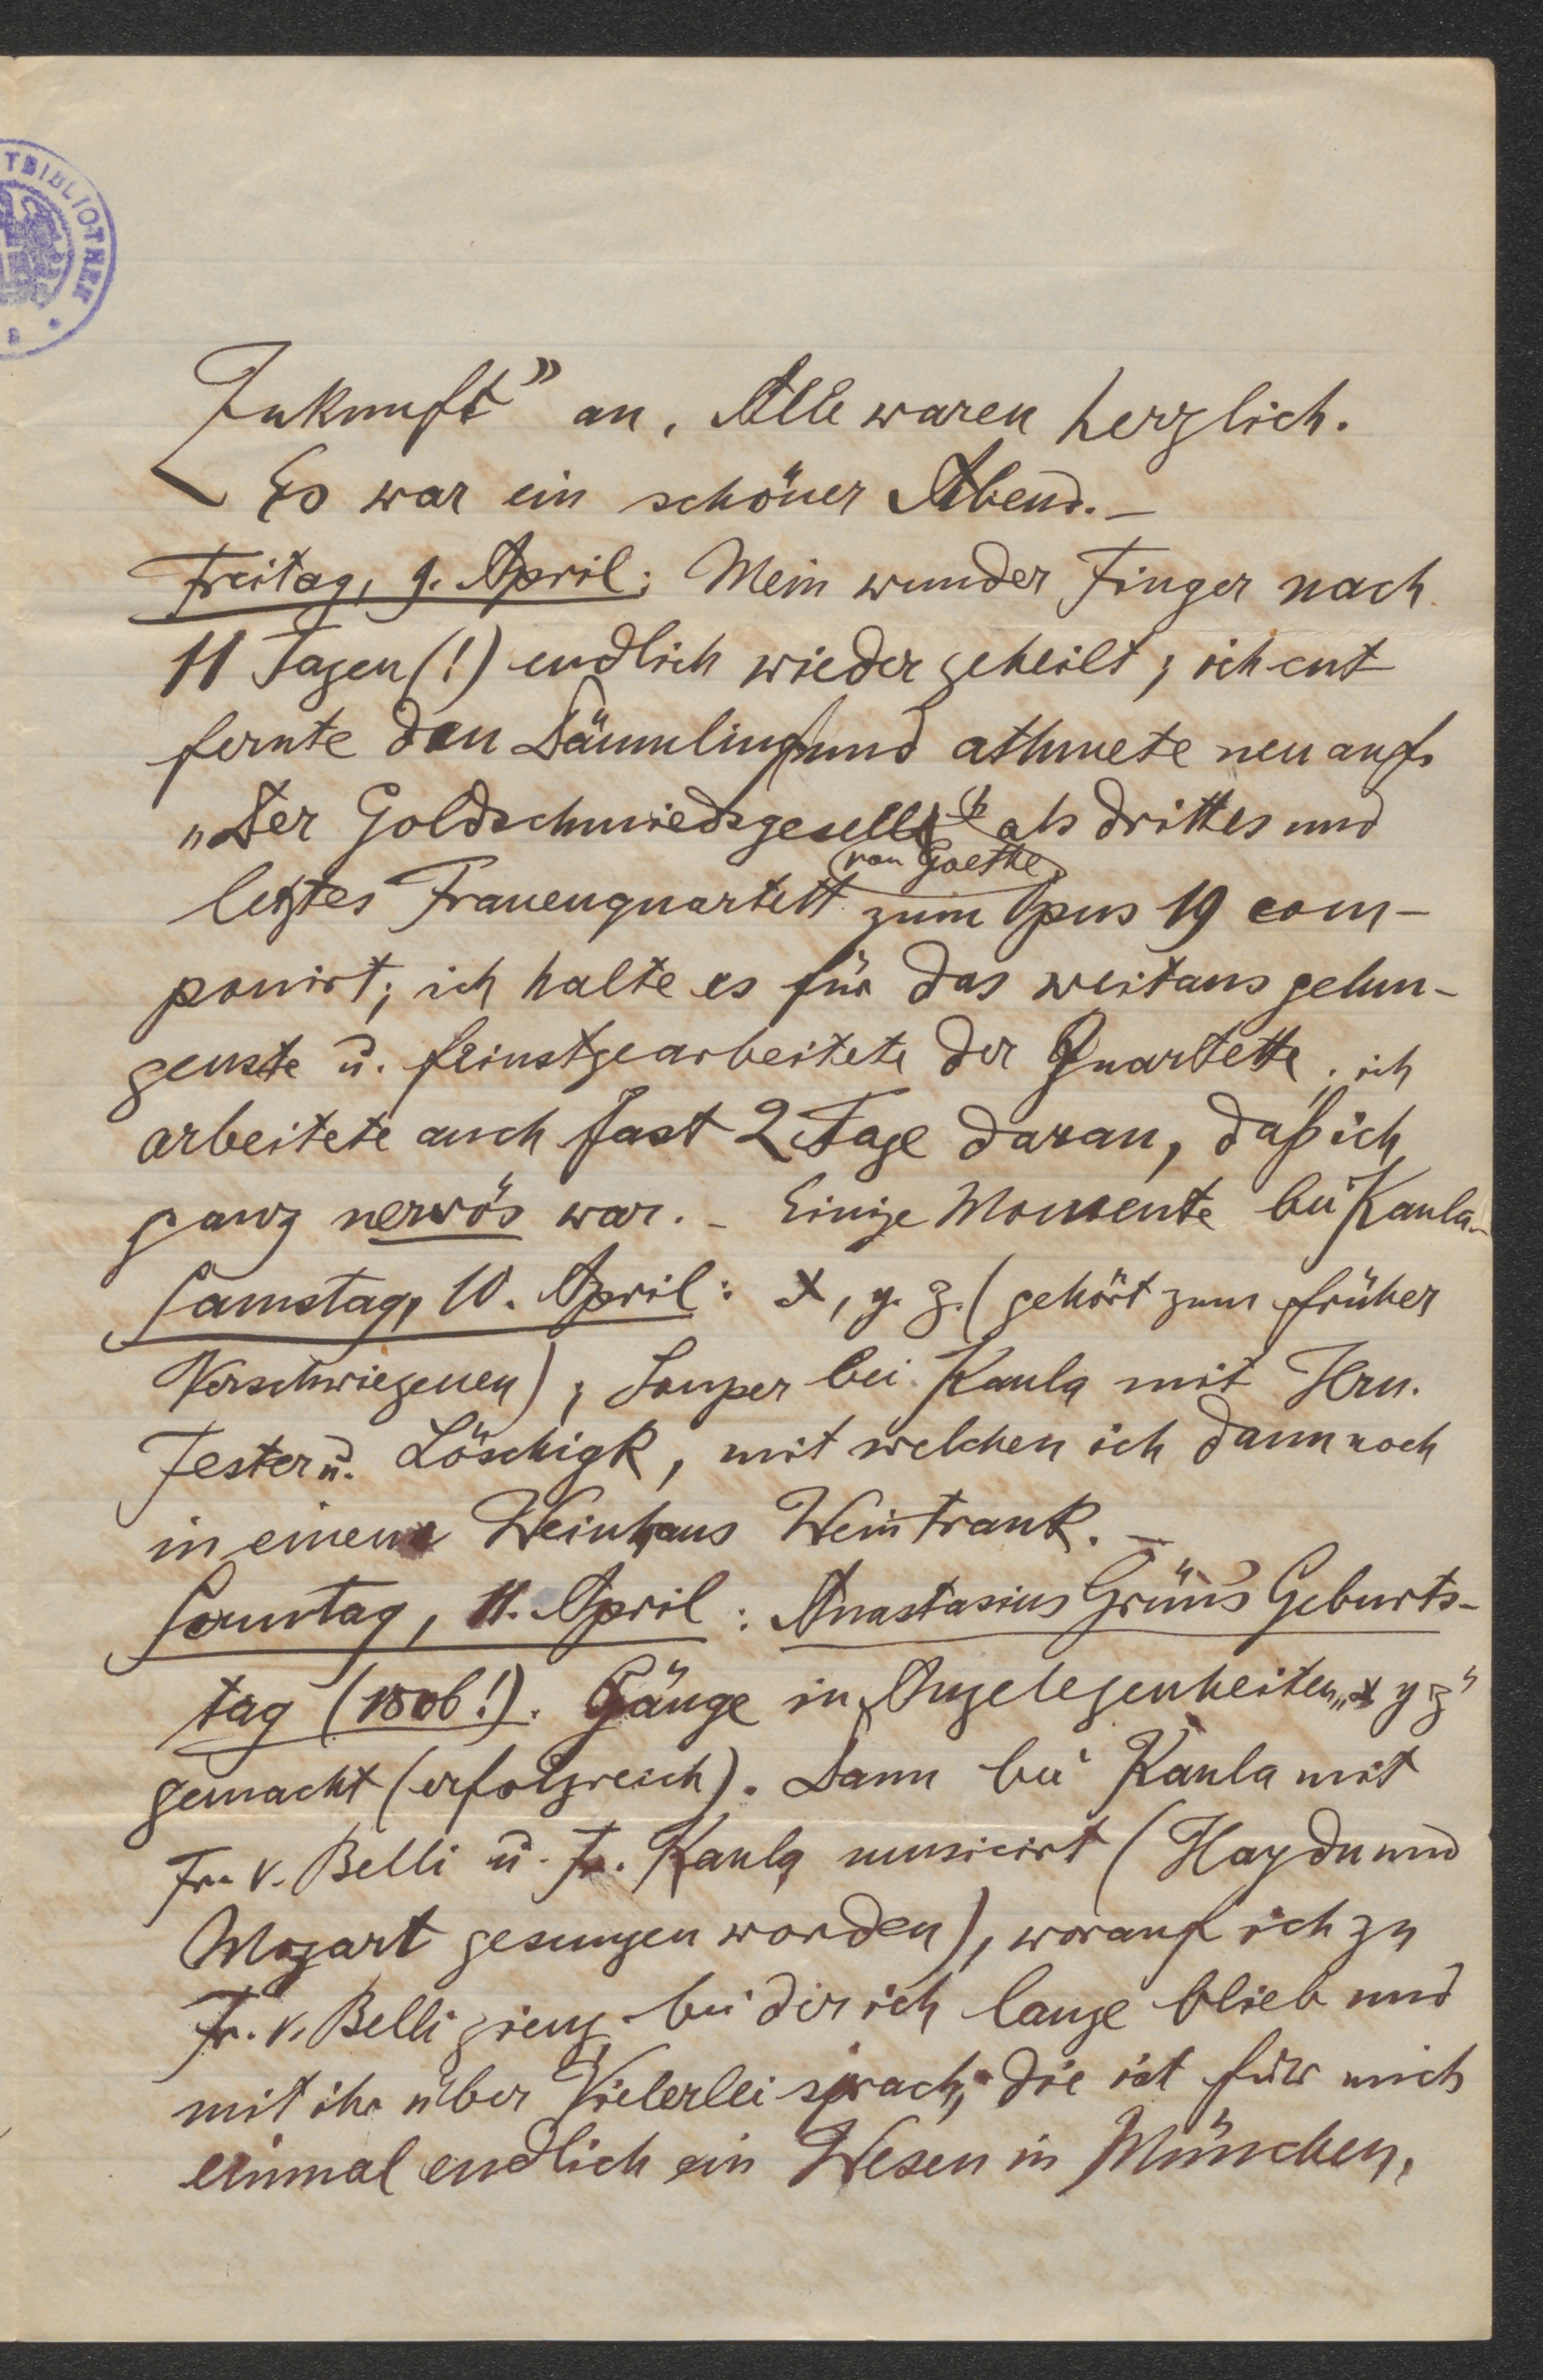 TBIBLIOTHEK
Zukunft" an. Alle waren herzlich.
Es war ein schöner Abend. –
Freitag, 9. April: Mein wunder Finger nach
11 Tagen (!) endlich wieder geheilt; ich ent
fernte den Däumling und athmete neu auf.
„Der Goldschmiedsgesell" als drittes und
von Goethe
letztes Frauenquartett zum Opus 19 com-
ponirt; ich halte es für das weitaus gelun-
genste u. feinstgearbeitete der Quartette; ich
arbeitete auch fast 2 Tage daran, daß ich
ganz nervös war. – Einige Momente bei Kaula. –
Samstag, 10. April: x, y. z. (gehört zum früher
Verschwiegenen); Souper bei Kaula mit Hrn.
Tester u. Löschigk, mit welchen ich dann noch
in einem Weinhaus Wein trank. –
Sonntag, 11. April: Anastasius Grün's Geburts-
tag (1806!). Gänge in Angelegenheiten „x y z"
gemacht (erfolgreich). Dann bei Kaula mit
Fr. v. Belli u. Fr. Kaula musicirt (Haydn und
Mozart gesungen worden), worauf ich zu
Fr. v. Belli gieng, bei der ich lange blieb und
mit ihr über Vielerlei sprach; die ist für mich
einmal endlich ein Wesen in München,